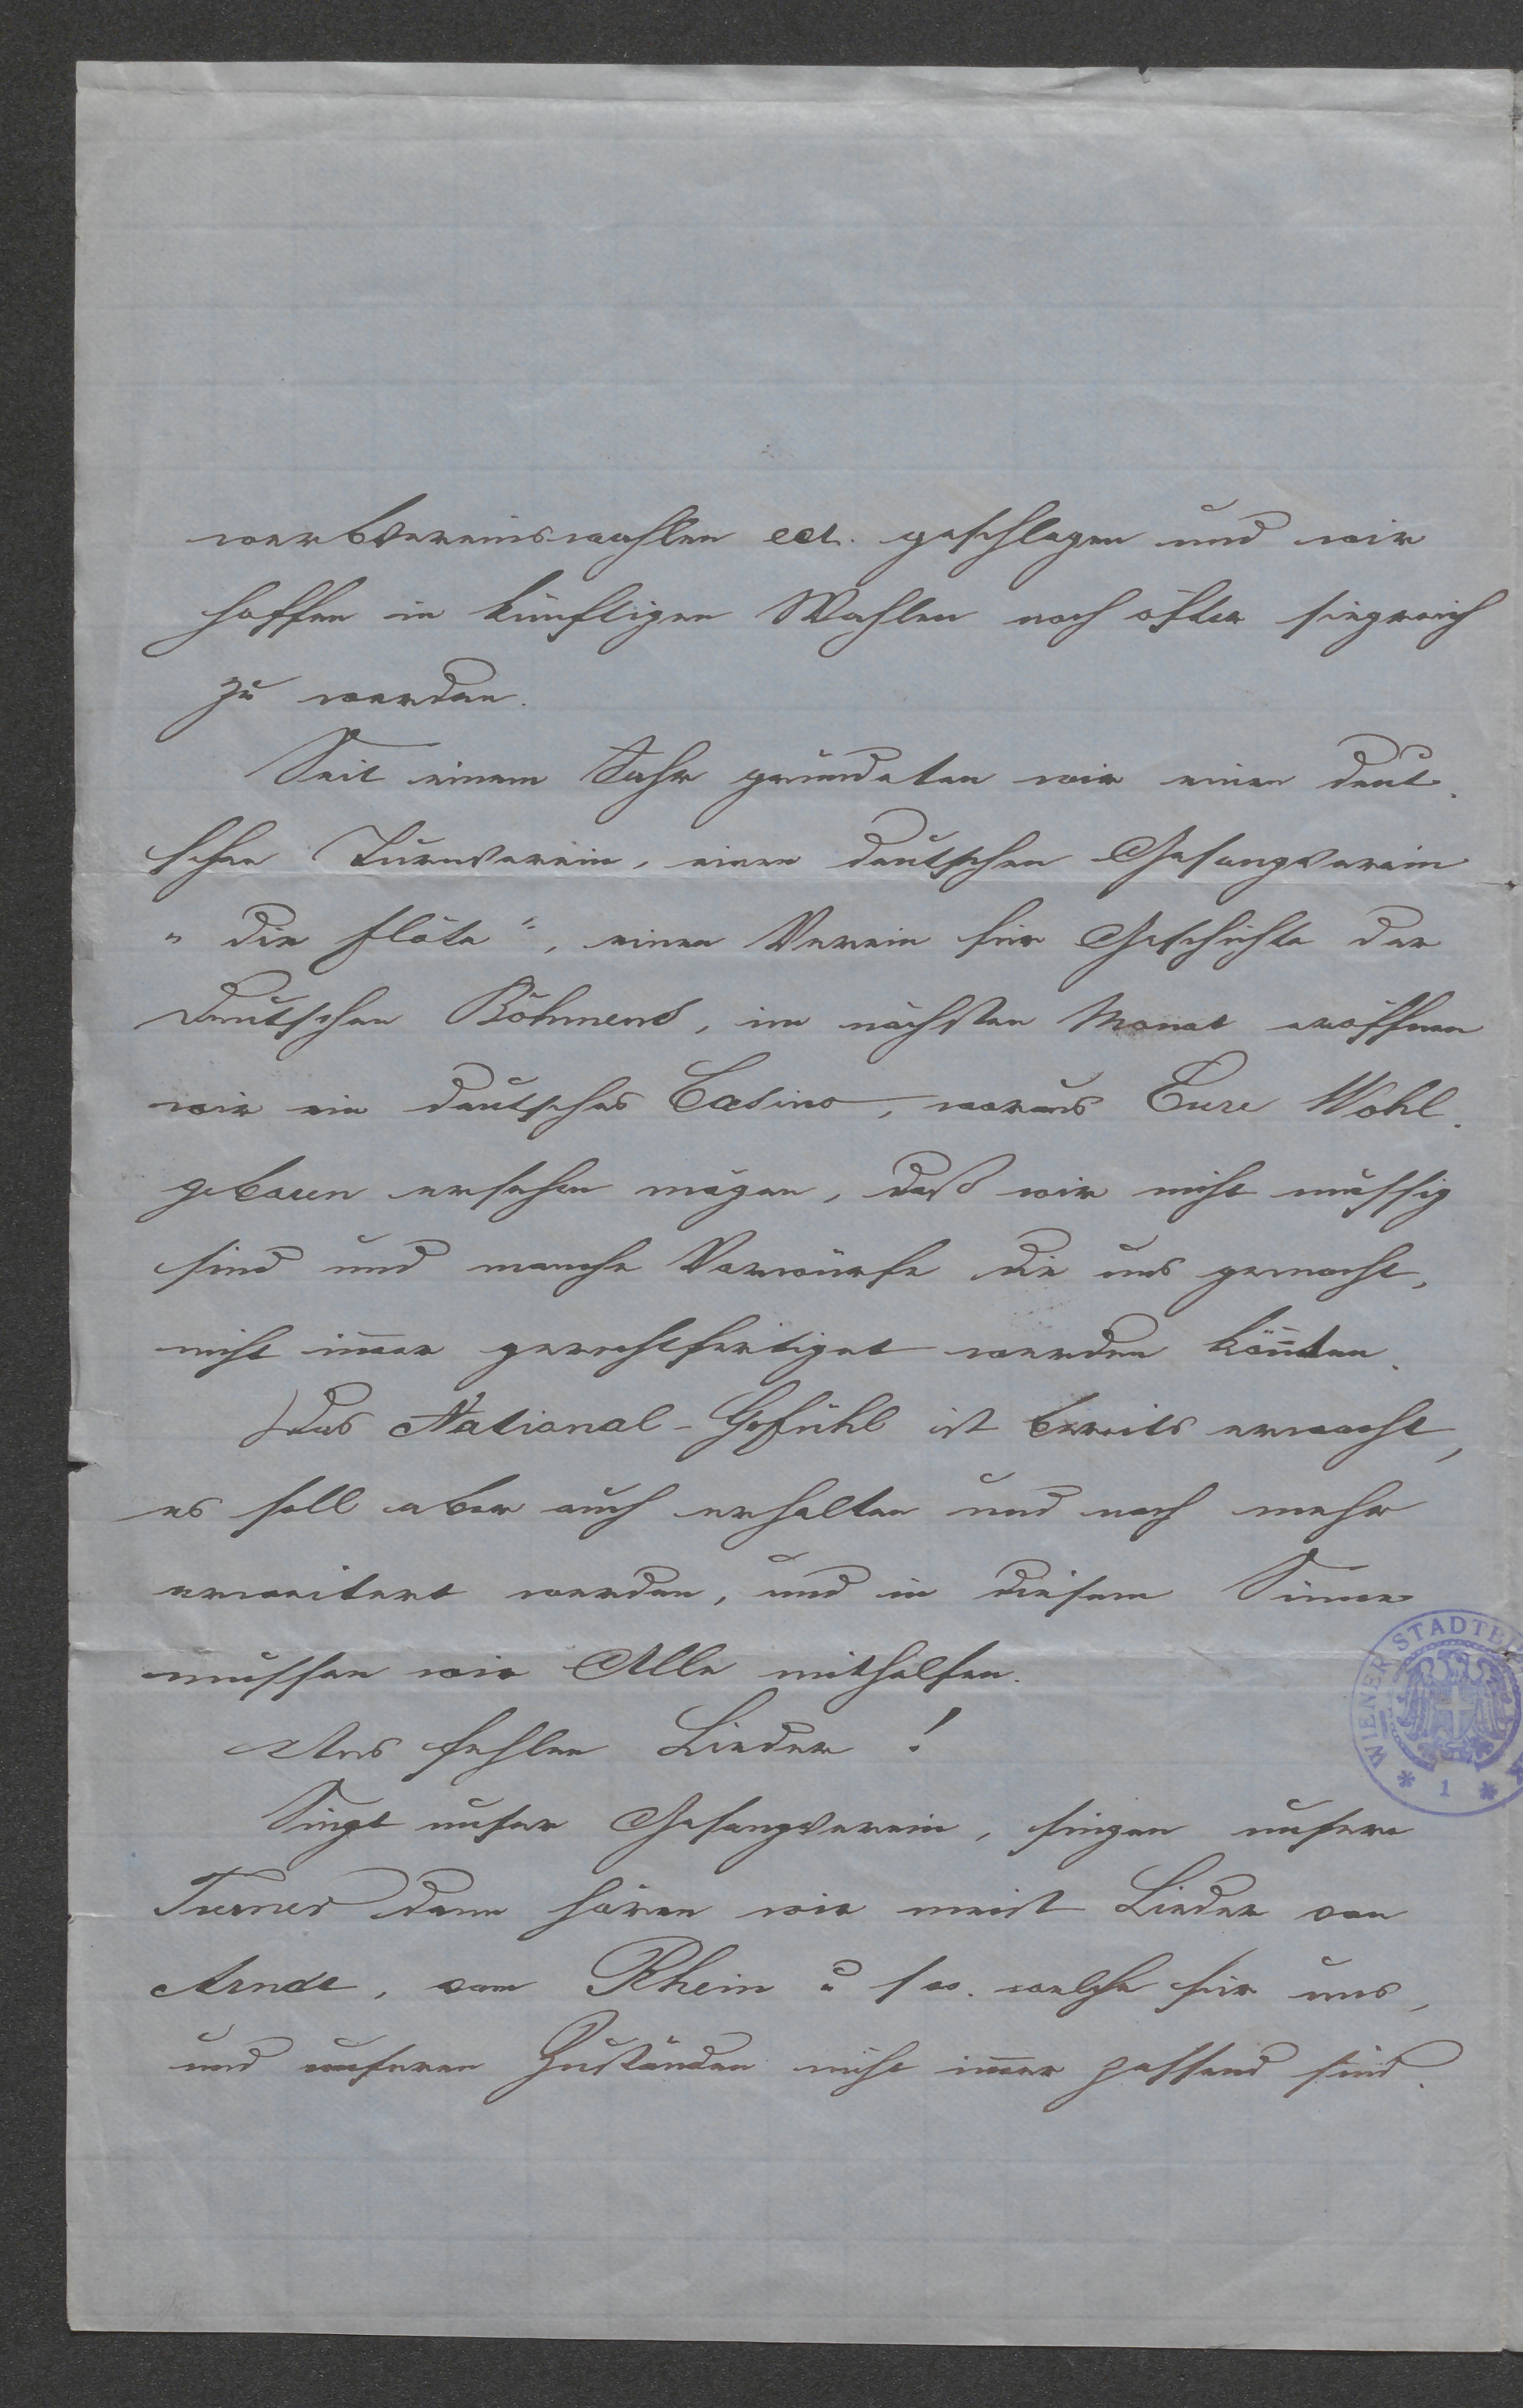 werbvereinswahlen ect. geschlagen und wir
hoffen in künftigen Wahlen noch öfter siegreich
zu werden.
Seit einem Jahr gründeten wir einen deut-
schen Turnverein, einen deutschen Gesangverein
"die Flöte", einen Verein für Geschichte der
Deutschen Böhmens, im nächsten Monat eröffnen
wir ein deutsches Casino, woraus Eure Wohl-
geboren ersehen mögen, daß wir nicht müssig
sind und manche Vorwürfe die uns gemacht,
nicht im̄er gerechtfertiget werden kön̄ten.
Das National-Gefühl ist bereits erwacht,
es soll aber auch erhalten und noch mehr
erweitert werden, und in diesem Sinne
müssen wir Alle mithelfen.
Uns fehlen Lieder!
Singt unser Gesangverein, singen unsere
Turner dann hören wir meist Lieder von
Arndt, vom Rhein u s w. welche für uns,
und unseren Zuständen nicht im̄er passend sind.
WIENER STADTBI
* 1 *